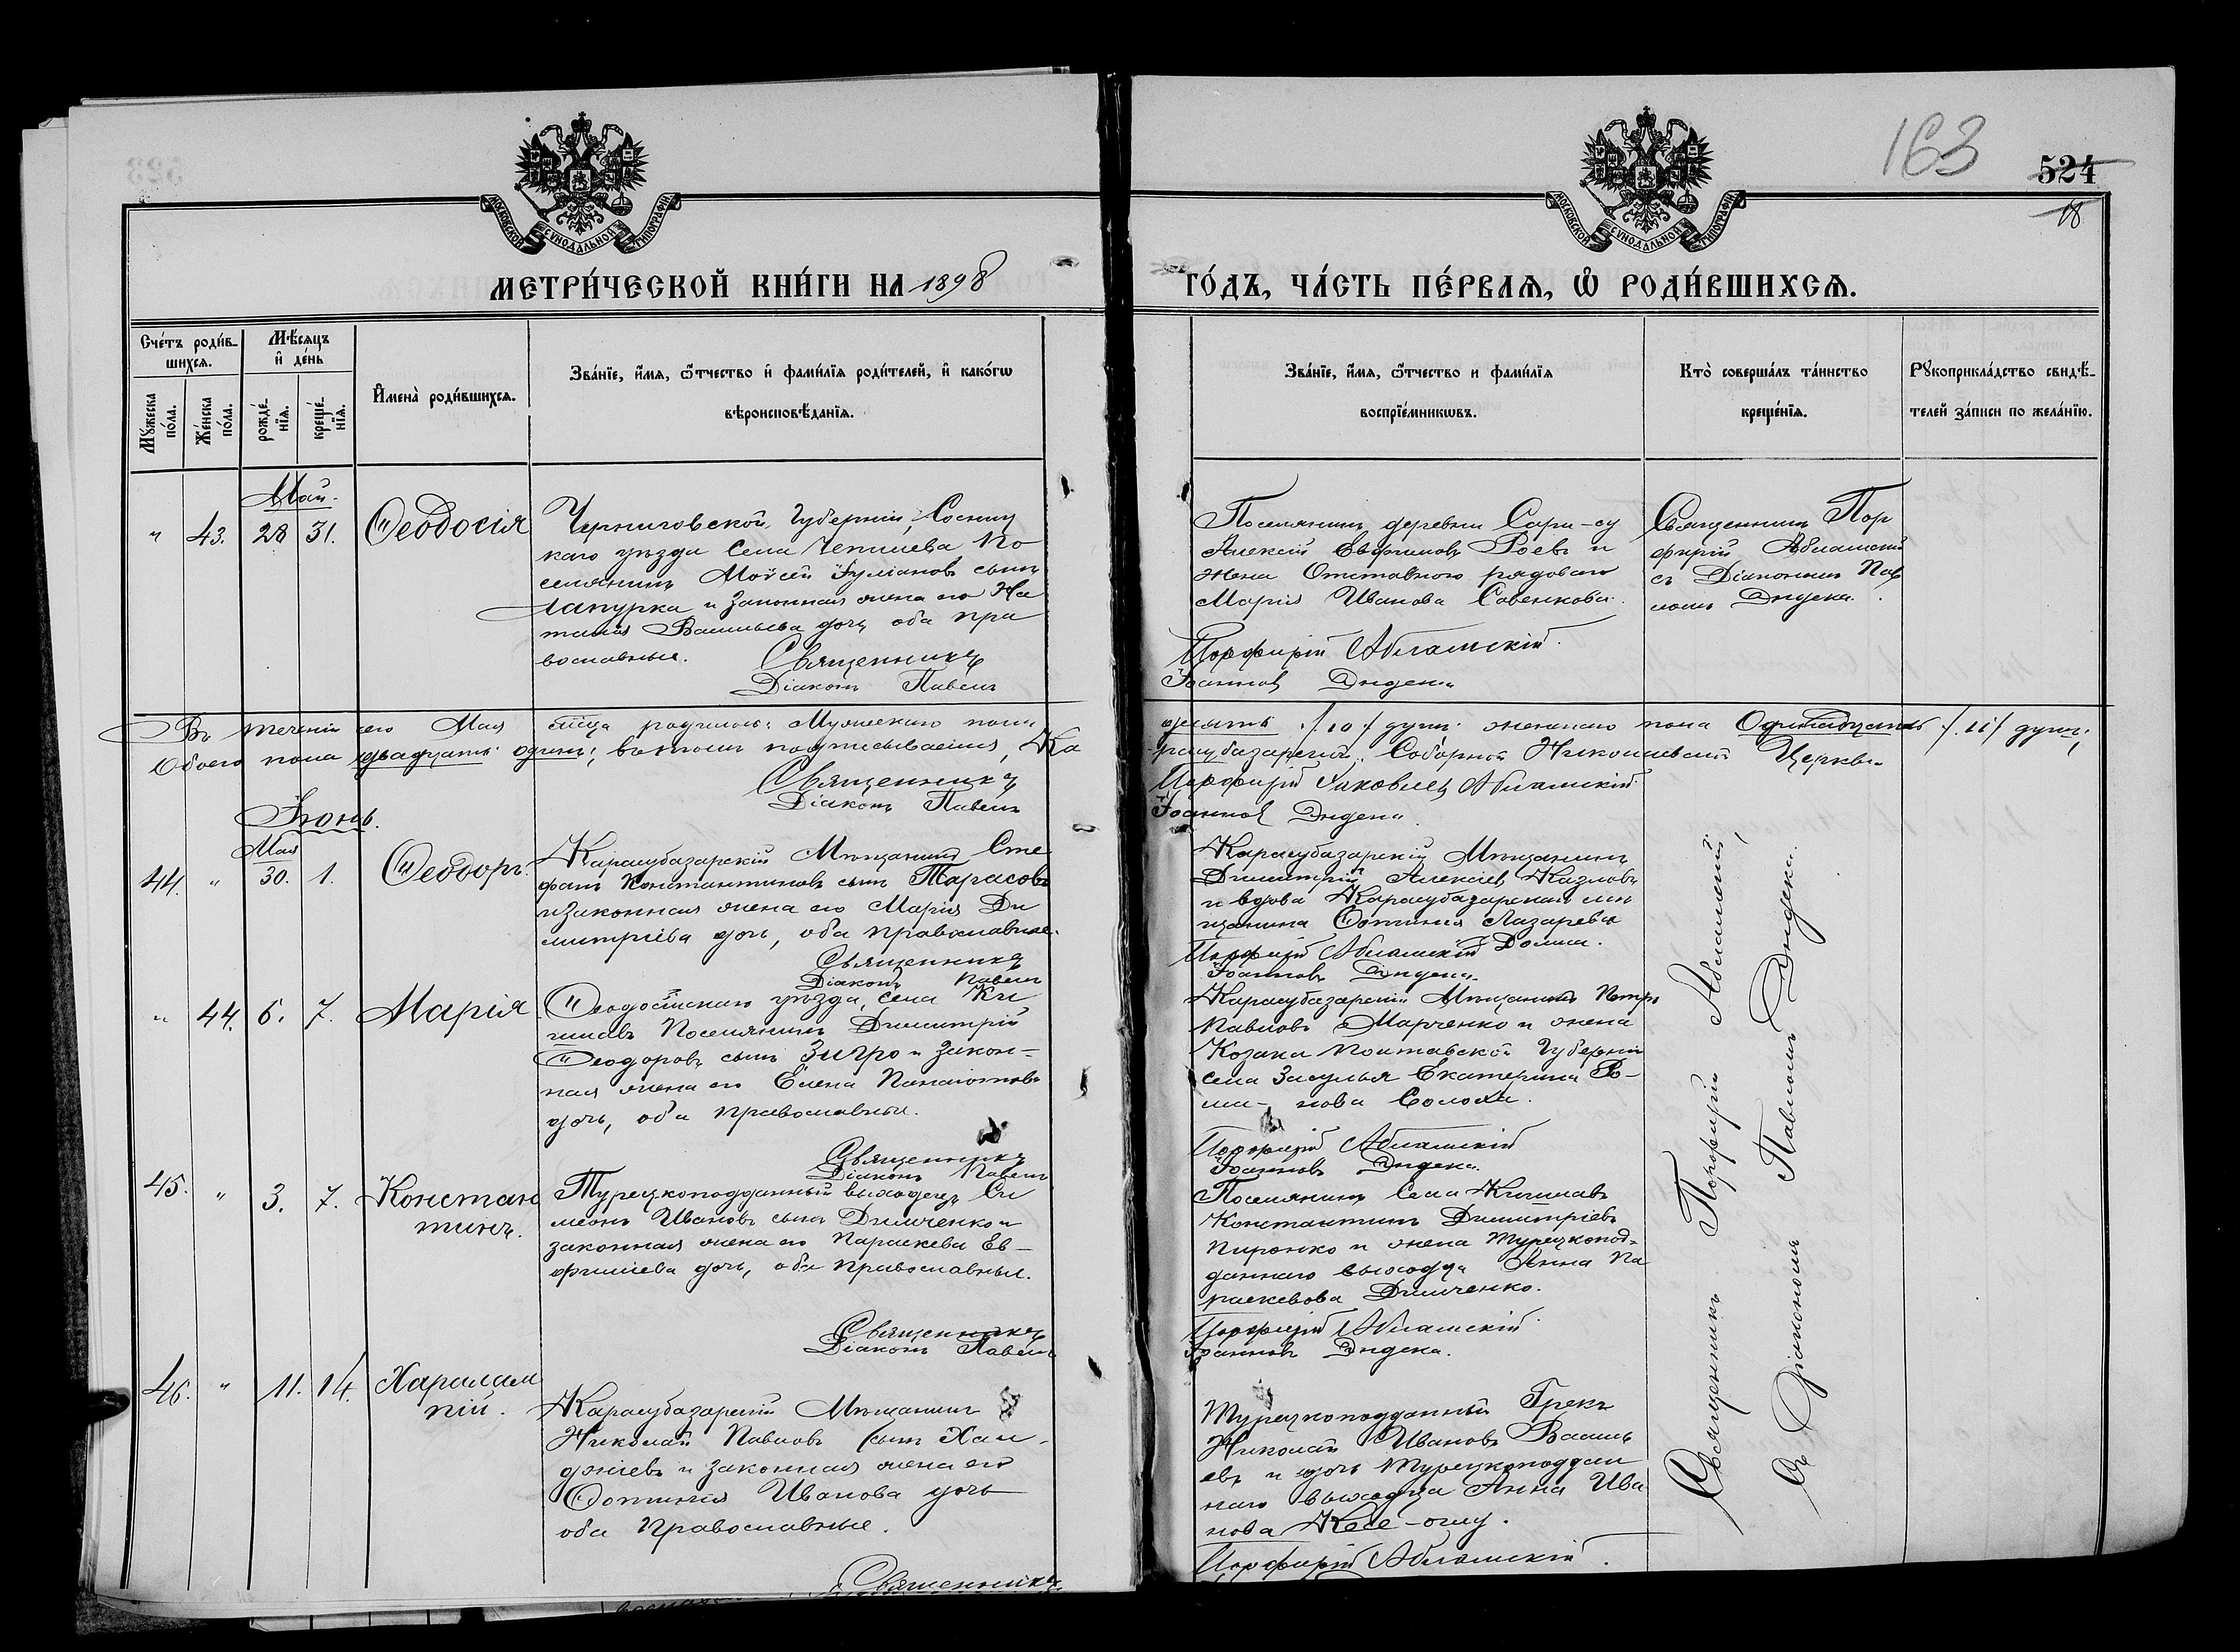 163
524
18
МОСКОВСКОЙ СѴНОДАЛЬНОЙ ТИПОГРАФІИ
МОСКОВСКОЙ СѴНОДАЛЬНОЙ ТИПОГРАФІИ
МЕТРИ́ЧЕСКОЙ КНИ́ГИ НА 1898
ГО́ДЪ, ЧА́СТЬ ПЕ́РВАѦ, Ѡ҆ РОДИ́ВШИХСѦ.
Сче́тъ роди́в-
шихсѧ.
Мꙋ́жеска по́ла.
Же́нска по́ла.
Мѣ́сяцъ
и҆ де́нь
рожде́-нїѧ.
креще́-нїѧ.
И҆мена̀ роди́вшихсѧ.
Зва́нїе, и҆́мѧ, ѻ҆́тчество и҆ фами́лїѧ роди́телей, и҆ како́гѡ
вѣроисповѣ́данїѧ.
Зва́нїе, и҆́мѧ, ѻ҆́тчество и фами́лїѧ
воспрїе́мникѡвъ.
Кто̀ соверша́лъ та́инство
креще́нїѧ.
Рꙋкоприкла́дство свидѣ́-
телей за́писи по жела́нїю.
Май.
" 43. 28 31. Ѳеодосія
Черниговской Губерніи, Сосниц
каго уѣзда села По
селянинъ Моѵсей Іуліановъ сынъ
Лапурка и законная жена его На
талія Васильева дочь, оба пра
вославные.
Священникъ
Діаконъ Павелъ
Поселянинъ деревни Сари-су
Алексій Евфимовъ Роевъ и
жена Отставного рядового
Марія Иванова Савенкова.
Порфирій Абламскій.
Іоанновъ Дидека
Священникъ Пор
фирій Абламскій
съ Діакономъ Пав
ломъ Дидека.
Въ теченіи его Мая мѣсяца родилось: Мужескаго пола
десять /10/ душъ: женскаго пола Одиннадцать /11/ душъ;
Обоего пола двадцать одинъ; въ томъ подписываемся, Ка
расубазарской Соборной Николаевской Церкви
Священникъ
Діаконъ Павелъ
Порфирій Іаковлевъ Абламскій
Іоанновъ Дидека.
Іюнь.
Мая
44. " 30. 1. Ѳеодоръ.
Карасубазарскій Мѣщанинъ Сте
фанъ Константиновъ сынъ Тарасовъ
и законная жена его Марія Ди
митріева дочь, оба православные.
Священникъ
Діаконъ Павелъ
Карасубазарскій Мѣщанинъ
Димитрій Алексіевъ Казловъ
и вдова Карасубазарскаго мѣ
щанина Фотинія Лазарева
Порфирій Абламскій
Іоанновъ Дидека.
" 44. 6. 7. Марія
Ѳеодосійскаго уѣзда, села Ки
шлавъ Поселянинъ Димитрій
Ѳеодоровъ сынъ Згуро и Закон-
ная жена его Елена Панаіотова
дочь, оба православные.
Священникъ
Діаконъ Павелъ
Карасубазарскій Мѣщанинъ Петръ
Павловъ Марченко и жена
Козака Полтавской Губерніи
села Засулья Екатерина
нова Солоха.
Порфирій Абламскій
Іоанновъ Дидека.
45. " 3. 7. Констан
тинъ.
Турецкоподданный выходецъ Си
меонъ Ивановъ сынъ Димченко и
законная жена его Параскева Ев-
фиміева дочь, оба православные.
Священникъ
Діаконъ Павелъ
Поселянинъ Села Кишлавъ
Константинъ Димитріевъ
Пиронко и жена Турецкопод-
даннаго выходца Анна Па
раскевова Димченко.
Порфирій Абламскій
Іоанновъ Дидека.
46. " 11. 14. Харалам
пій.
Карасубазарскій Мѣщанинъ
Николай Павловъ сынъ Хаи
джіевъ и законная жена его
Фотинія Иванова дочь
оба Православные.
Священникъ
Турецкоподданный Грекъ
Николай Ивановъ Василь
евъ и дочь Турецкоподдан
наго выходца Анна Ива
нова Кесе-оглу.
Порфирій Абламскій.
Священникъ Порфирій Абламскій,
съ Діакономъ Павломъ Дидека.